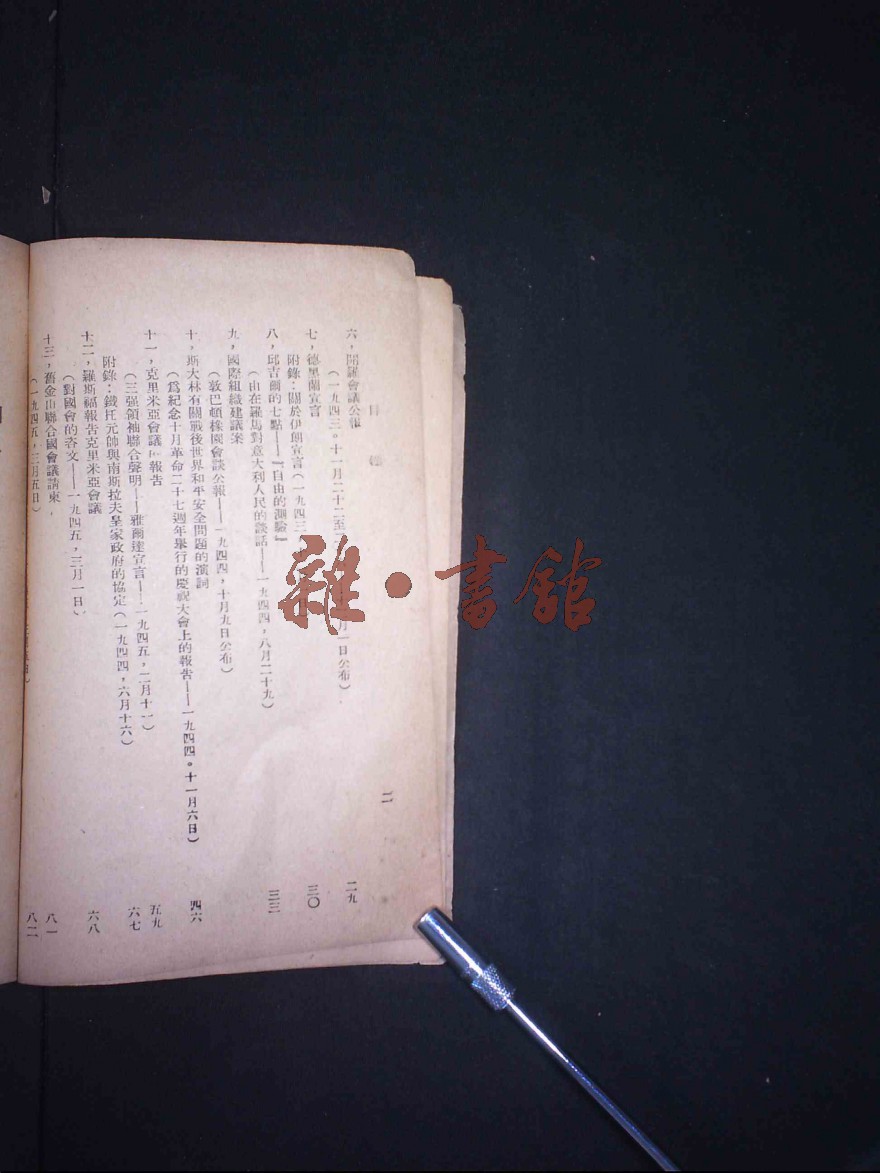 目
二
六，開羅會議公報
二九
（一九四三。十一月二十二至
月一日公布）
七，德黑蘭宣言
三〇
附錄：關於伊朗宣言（一九四三
八，邱吉爾的七點——『自由的測驗』
三三
（由在羅馬對意大利人民的談話——一九四四，八月二十九）
九，國際組織建議案
（敦巴頓橡園會談公報——一九四四，十月九日公布）
十，斯大林有關戰後世界和平安全問題的演詞
四六
（爲紀念十月革命二十七週年舉行的慶祝大會上的報告——一九四四。十一月六日）
十一，克里米亞會議 報告
五九
（三强領袖聯合聲明——雅爾達宣言——一九四五，二月十一）
六七
附錄：鐵托元帥與南斯拉夫皇家政府的協定（一九四四，六月十六）
十二，羅斯福報告克里米亞會議
六八
（對國會的咨文——一九四五，三月一日）
十三，舊金山聯合國會議請柬
八一
（一九四五，三月五日）
八二
雜·書館